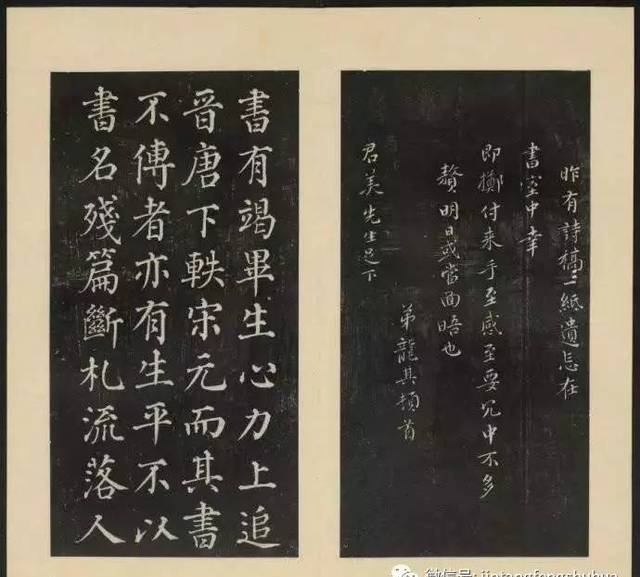 昨有詩稿二紙遺忘在
書室中幸
即擲付来手至感至要冗中不多
贅明日或當面晤也
弟龍其頓首
君美先生足下
書有竭畢生心力上追
晉唐下軼宋元而其書
不傳者亦有生平不以
書名殘篇斷札流落人
微信号: